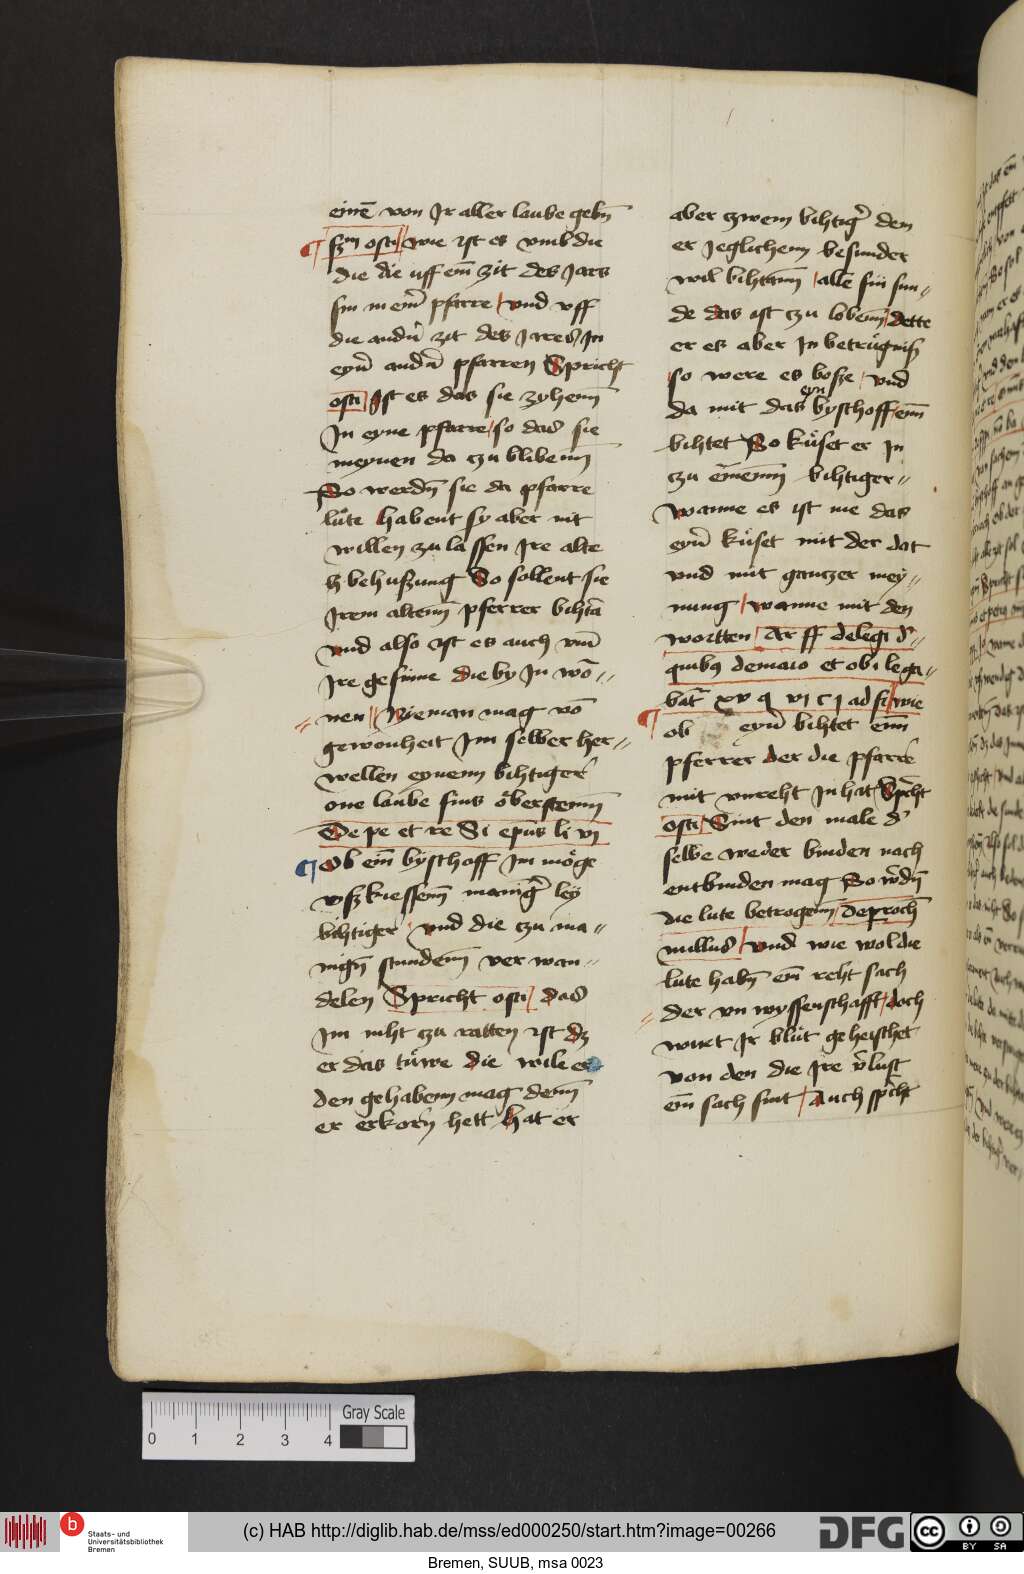 einē von Jr aller laube gebn̄
ſzm̄ oſti wie iſt es vmb die
die die uff em̄ zit des Jars
ſin in em̄ pfarre / vnd vff
die andn̄ zit des Jares Jn
eyn̄ andn̄ pfarren Spricht
oſti Jſt es das ſie zyhenn̄
Jn eyne pfarre / ſo das ſie
meynen da czu blibenn̄
So werdn̄ ſie da pfarre
lu̍te habent ſy aber nit
willen zu laſſen Jre alte
behuſzung So ſollent ſie
Jrem altenn̄ pferrer bihtn̄
vnd alſo iſt es auch vm̄
Jre geſinne die by Jn wo̅=
nen / Nieman mag vo̅
gewonheit Jm ſelber her=
wellen eynenn bihtiger
one laube ſins oͤberſtenn̄
De pe et re Si ep̄us li vi
Ob em̄ byſthoff Jm moͤge
vſzkieſſenn̄ manigˀ ley
bihtiger / vnd die czu ma=
nign̄ ſtundenn̄ ver wan=
delen Spricht oſti / das
Jm niht czu ratten iſt dz
er das tuͤwe die wile er
den gehabenn mag denn̄
er erkorn̄ hett hat er
aber zwenn bihtigˀ den
er Jeglichenn beſunder
wil bihtann̄ / alle ſin ſun=
de das iſt czu lobenn̄ / dette
er es aber Jn betruͤgniſz
ſo were es boſze / vnd
eyn
da mit das byſthoff enn̄
bihtet So kuͤſet er Jn
czu ēinenn̄ bihtiger=
wanne es iſt me das
eyn̄ kuͤſet mit der dat
vnd mit gantzer mey=
nung / wanne mit den
wortten / Ar ff delegi dˀ=
quibꝯ demaio et obi lega=
bat̄ xv q vi c j ad ſi / wie
ob eyn̄ bihtet enn̄
pferrer der die pfarre
mit vnreht Jn hat Spˀcht
oſti / Sint den male dˀ
ſelbe weder binden nach
entbinden mag So wˀdn̄
die lute betrogenn̄ / De proch
nullus / vnd wie wol die
lute habn̄ em̄ reht ſach
der vn wyſſenſchafft / doch
wirt Jr bluͤt geheiſchet
von den die Jre vˀluſt
em̄ ſach ſint / Auch ſpˀcht
0 1 2 3 4
Gray Scale
b
Staats- und
Universitätsbibliothek
Bremen
(c) HAB http://diglib.hab.de/mss/ed000250/start.htm?image=00266
DFG
cc BY SA
Bremen, SUUB, msa 0023